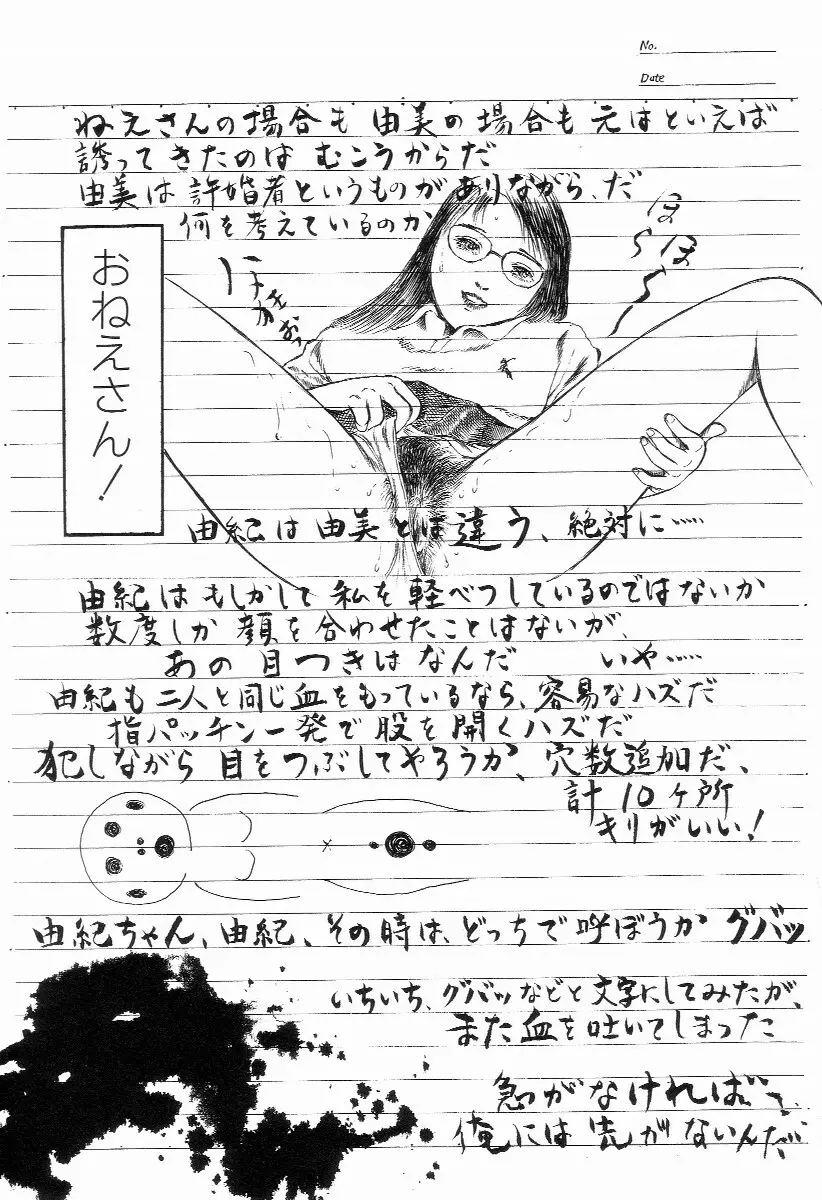 No.
Date
ねえさんの場合も 由美の場合も 元はといえば
誘ってきたのは むこうからだ
由美は許婚者というものがありながら、だ
何を考えているのか
おねえさん!
ほらほら〜
由紀は 由美とは違う、絶対に……
由紀は もしかして 私を 軽べつしているのではないか
数度しか 顔を 合わせたことはないが、
あの 目つきは なんだ いや……
由紀も 二人と同じ血をもっているなら、容易なハズだ
指パッチン一発で 股を 開くハズだ
犯しながら 目を つぶしてやろうか、穴数追加だ、
計 10ヶ所
キリがいい!
由紀ちゃん、由紀、その時は、どっちで 呼ぼうか グバッ
いちいち、グバッなどと 文字にしてみたが、
また 血を 吐いてしまった
急がなければ…
俺には 先がないんだ…